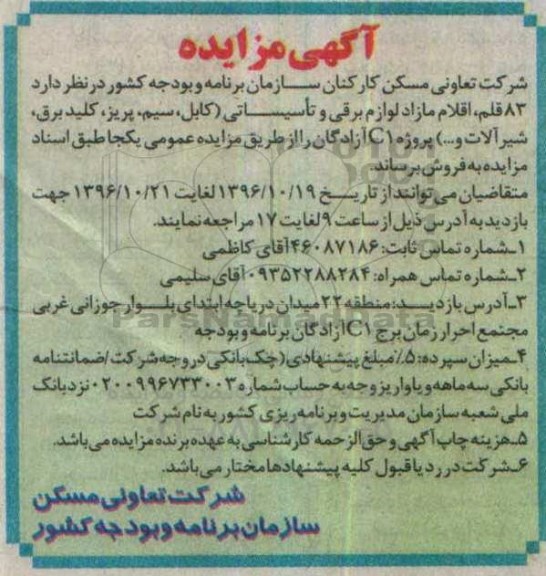 آگهی مزایده
شرکت تعاونی مسکن کارکنان سازمان برنامه و بودجه کشور در نظر دارد
۸۳ قلم، اقلام مازاد لوازم برقی و تأسیساتی (کابل، سیم، پریز، کلید برق،
شیرآلات و...) پروژه C۱ آزادگان را از طریق مزایده عمومی یکجا طبق اسناد
مزایده به فروش برساند.
متقاضیان می توانند از تاریخ ۱۳۹۶/۱۰/۱۹ لغایت ۱۳۹۶/۱۰/۲۱ جهت
بازدید به آدرس ذیل از ساعت ۹ لغایت ۱۷ مراجعه نمایند.
۱ـ شماره تماس ثابت: ۴۶۰۸۷۱۸۶ آقای کاظمی
۲ـ شماره تماس همراه: ۰۹۳۵۲۲۸۸۲۸۴ آقای سلیمی
۳ـ آدرس بازدید: منطقه ۲۲ میدان دریاچه ابتدای بلوار جوزانی غربی
مجتمع احرار زمان برج C۱ آزادگان برنامه و بودجه
ParsNamadData
۴ـ میزان سپرده: ۵٪ مبلغ پیشنهادی (چک بانکی در وجه شرکت/ضمانتنامه
بانکی سه ماهه و یا واریز وجه به حساب شماره ۰۲۰۰۹۹۶۷۳۳۰۰۳ نزد بانک
ملی شعبه سازمان مدیریت و برنامه ریزی کشور به نام شرکت
۵ـ هزینه چاپ آگهی و حق الزحمه کارشناسی به عهده برنده مزایده می باشد.
۶ـ شرکت در رد یا قبول کلیه پیشنهادها مختار می باشد.
شرکت تعاونی مسکن
سازمان برنامه و بودجه کشور